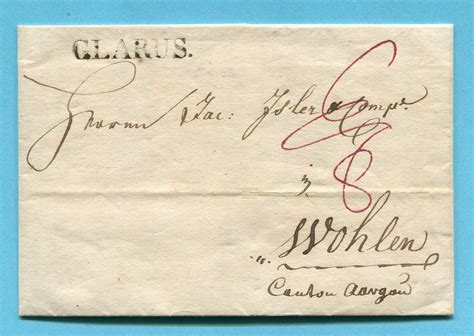 GLARUS.
Herrn Jac: Isler & Compe
8
Wohlen
Canton Aargau